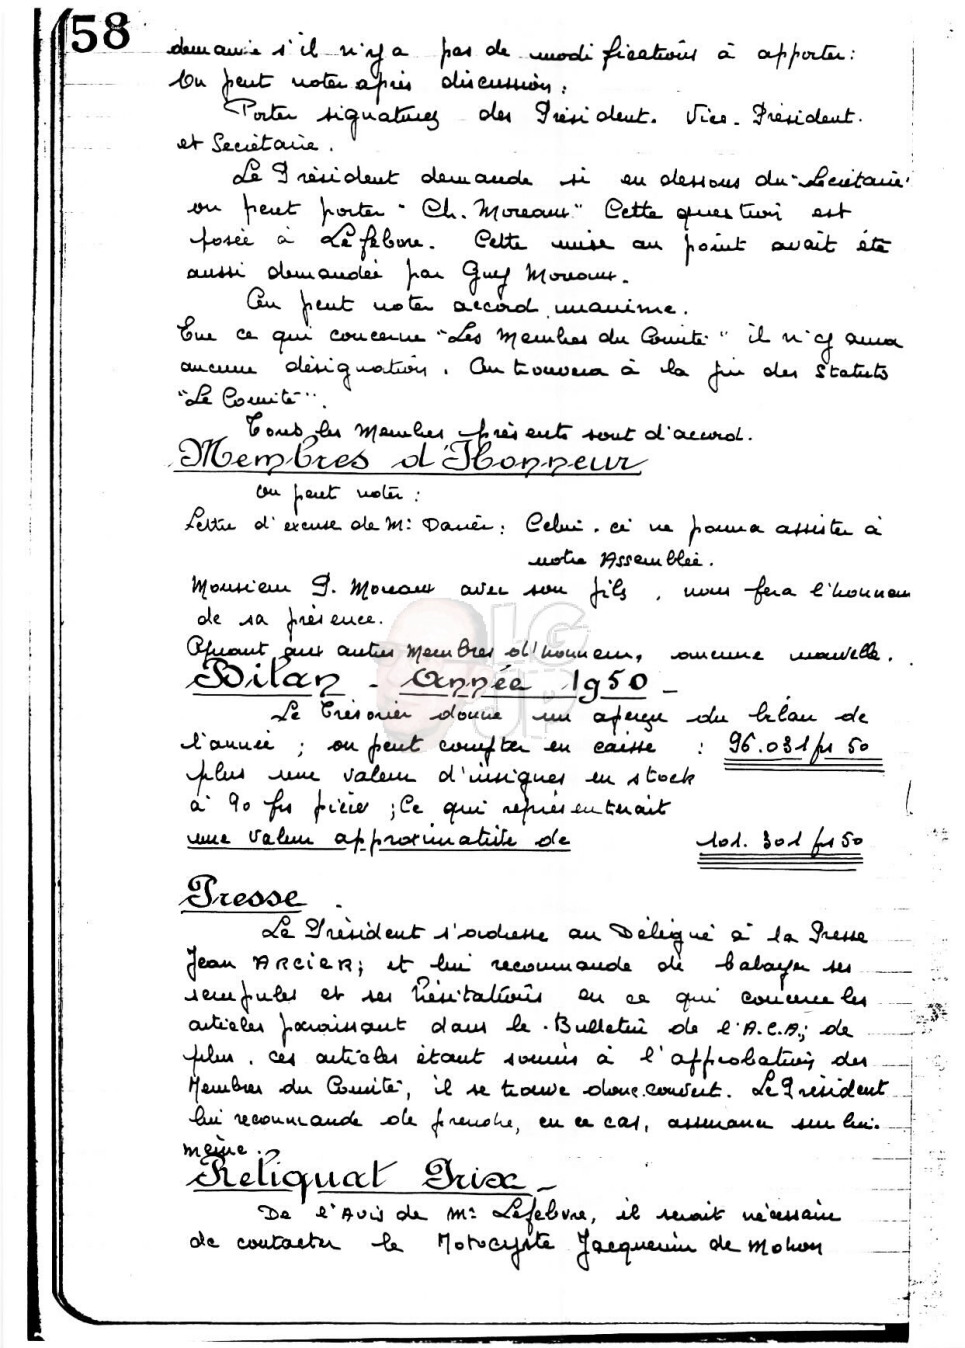 58
demande s'il n'y a pas de modifications à apporter :
On peut noter après discussion :
Porter signatures des Président. Vice-Président.
et Secrétaire.
Le Président demande si en dessous du "Secrétaire"
on peut porter "Ch. Moreaux" Cette question est
posée à Lefebvre. Cette mise au point avait été
aussi demandée par Guy Moreaux.
On peut noter accord unanime.
En ce qui concerne "Les Membres du Comité" il n'y aura
aucune désignation. On trouvera à la fin des Statuts
"Le Comité".
Tous les Membres présents sont d'accord.
Membres d'Honneur
On peut noter :
Lettre d'excuse de Mr : Celui-ci ne pourra assister à
notre Assemblée.
Monsieur P. Moreaux avec son fils, nous fera l'honneur
de sa présence.
Quant aux autres Membres d'honneur, aucune nouvelle.
IG
JP
Bilan - Année 1950 -
Le Trésorier donne un aperçu du bilan de
l'année ; on peut compter en caisse : 96.031 frs 50
plus une valeur d'insignes en stock
à 90 frs pièce ; Ce qui représenterait
une valeur approximative de 101.301 frs 50
Presse.
Le Président s'adresse au Délégué à la Presse
Jean ARCIER ; et lui recommande de balayer ses
scrupules et ses hésitations en ce qui concerne les
articles paraissant dans le Bulletin de l'A.C.A ; de
plus, ces articles étant soumis à l'approbation des
Membres du Comité, il se trouve donc couvert. Le Président
lui recommande de prendre, en ce cas, assurance sur lui-
même.
Reliquat Prix -
De l'Avis de Mr Lefebvre, il serait nécessaire
de contacter le Motocyste Jacquemin de Mohon